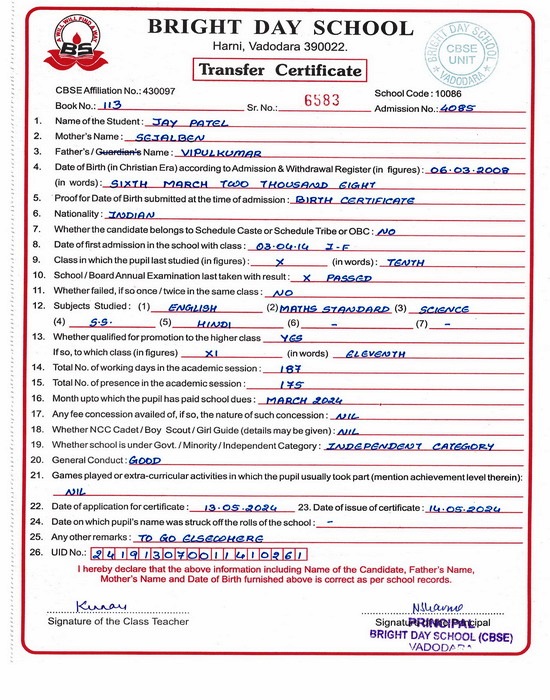 A WILL WILL FIND A WAY
BS
BRIGHT DAY SCHOOL
Harni, Vadodara 390022.
Transfer Certificate
BRIGHT DAY SCHOOL
CBSE
UNIT
VADODARA
CBSE Affiliation No.: 430097 School Code : 10086
Book No.: 113 Sr. No.: 6583 Admission No.: 4085
1. Name of the Student : JAY PATEL
2. Mother's Name : SEJALBEN
3. Father's / Guardian's Name : VIPULKUMAR
4. Date of Birth (in Christian Era) according to Admission & Withdrawal Register (in figures) : 06.03.2008
(in words) : SIXTH MARCH TWO THOUSAND EIGHT
5. Proof for Date of Birth submitted at the time of admission : BIRTH CERTIFICATE
6. Nationality : INDIAN
7. Whether the candidate belongs to Schedule Caste or Schedule Tribe or OBC : NO
8. Date of first admission in the school with class : 03.04.14 I-F
9. Class in which the pupil last studied (in figures) : X (in words) : TENTH
10. School / Board Annual Examination last taken with result : X PASSED
11. Whether failed, if so once / twice in the same class : NO
12. Subjects Studied : (1) ENGLISH (2) MATHS STANDARD (3) SCIENCE
(4) S.S. (5) HINDI (6) - (7) -
13. Whether qualified for promotion to the higher class YES
If so, to which class (in figures) XI (in words) ELEVENTH
14. Total No. of working days in the academic session : 187
15. Total No. of presence in the academic session : 175
16. Month upto which the pupil has paid school dues : MARCH 2024
17. Any fee concession availed of, if so, the nature of such concession : NIL
18. Whether NCC Cadet / Boy Scout / Girl Guide (details may be given) : NIL
19. Whether school is under Govt. / Minority / Independent Category : INDEPENDENT CATEGORY
20. General Conduct : GOOD
21. Games played or extra-curricular activities in which the pupil usually took part (mention achievement level therein):
NIL
22. Date of application for certificate : 13.05.2024 23. Date of issue of certificate : 14.05.2024
24. Date on which pupil's name was struck off the rolls of the school : -
25. Any other remarks : TO GO ELSEWHERE
26. UID No.: 241913070011410261
I hereby declare that the above information including Name of the Candidate, Father's Name,
Mother's Name and Date of Birth furnished above is correct as per school records.
Signature of the Class Teacher
Signature of the Principal
PRINCIPAL
BRIGHT DAY SCHOOL (CBSE)
VADODARA